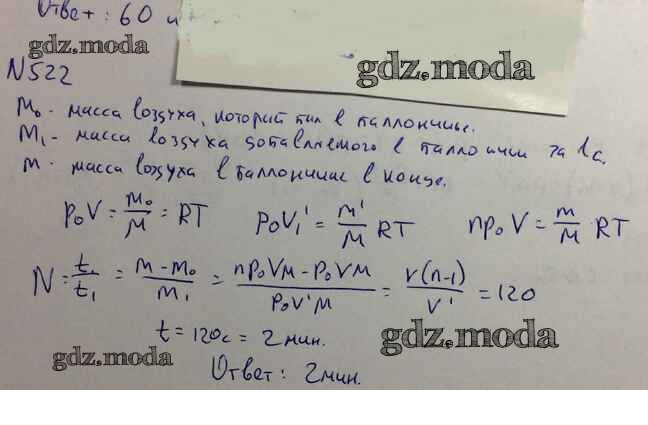 Ответ: 60 и
gdz.moda
N522
m₀ - масса воздуха, который был в баллончике.
m₁ - масса воздуха добавляемого в баллончик за 1с.
m - масса воздуха в баллончике в конце.
p₀V = m₀/M = RT p₀V₁' = m'/M RT np₀V = m/M RT
N = t/t₁ = m-m₀/m₁ = np₀VM-p₀VM/p₀V'M = V(n-1)/V' = 120
t = 120с = 2 мин.
gdz.moda
gdz.moda
Ответ: 2 мин.